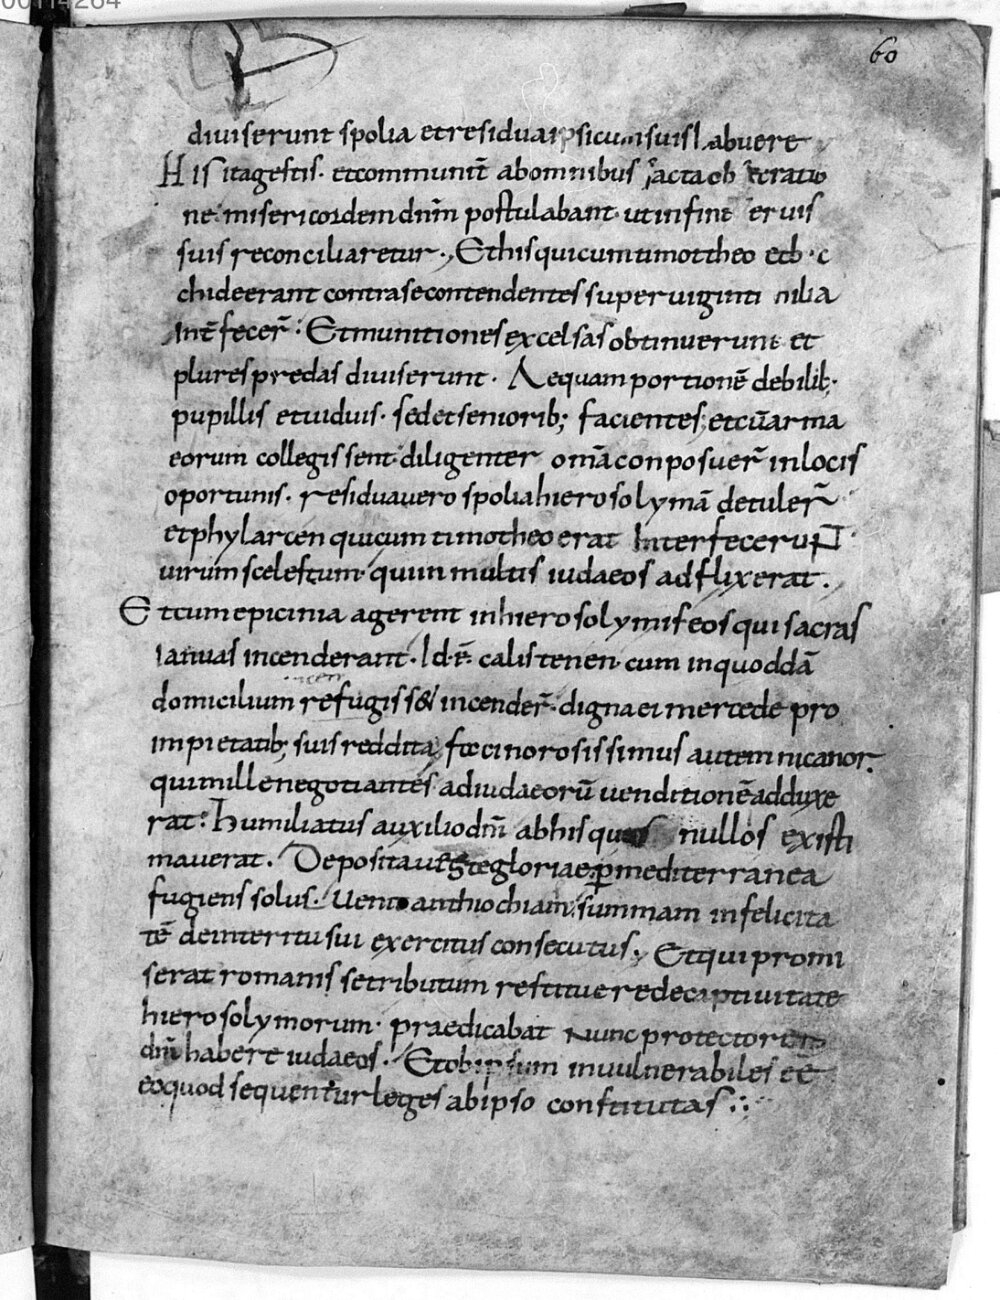 60
diuiserunt spolia et residua ipsi cum suis habuere
His itagestis· etcommunit̄ abomnibus facta obsecratio
ne· misericordem dn̄m postulabant· utinfine seruis
suis reconciliaretur·, Ethis quicum timottheo et b c
chide erant contrase contendentes super uiginti milia
Int̄fecer̄: Etmunitiones excelsas obtinuerunt et
plures predas diuiserunt· Aequam portionē debilib;·
pupillis etuiduis· sedetseniorib; facientes; etcū arma
eorum collegissent· diligenter om̄a conposuer̄ inlocis
oportunis· residua uero spolia hierosolymā detuler̄
etphylarcen quicum timotheo erat Interfecerunt
uirum scelestum· quiin multis iudaeos adflixerat.
Etcum epicinia agerent inhierosolymis eos qui sacras
ianuas incenderant· Id·ē· calistenen· cum inquoddā
domicilium refugisset incender̄· digna ei mercede pro
impietatib; suis reddita, foecinorosissimus autem nicanor·
quimille negotiantes adiudaeorū uenditionē adduxe
rat: humiliatus auxilio dn̄i abhis quos nullos existi
mauerat. Deposita ueste gloriae; p̱ mediterranea
fugiens solus. Uenit anthiochiam; summam infelicita
tē deinteritu sui exercitus consecutus; Etqui promi
serat romanis setributum restituere decaptiuitate
hierosolymorum· praedicabat Nunc protectorem
dn̄m habere iudaeos· Etobipsum inuulnerabiles eē
eoquod sequentur leges abipso constitutas :·